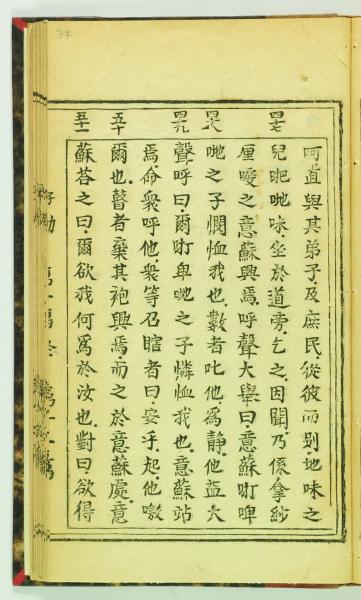 呵直與其弟子及庶民從彼而别地味之
四七
兒吧哋味坐於道旁乞之因聞乃係拿紗
厘嗳之意蘇興焉呼聲大舉曰意蘇叮啤
四八
哋之子憫恤我也數者叱他為靜他益大
四九
聲呼曰爾叮啤哋之子憐恤我也意蘇站
焉命衆呼他衆等召瞎者曰安乎起他噭
五十
爾也瞽者棄其袍興焉而之於意蘇處意
五十一
蘇荅之曰爾欲我何為於汝也對曰欲得